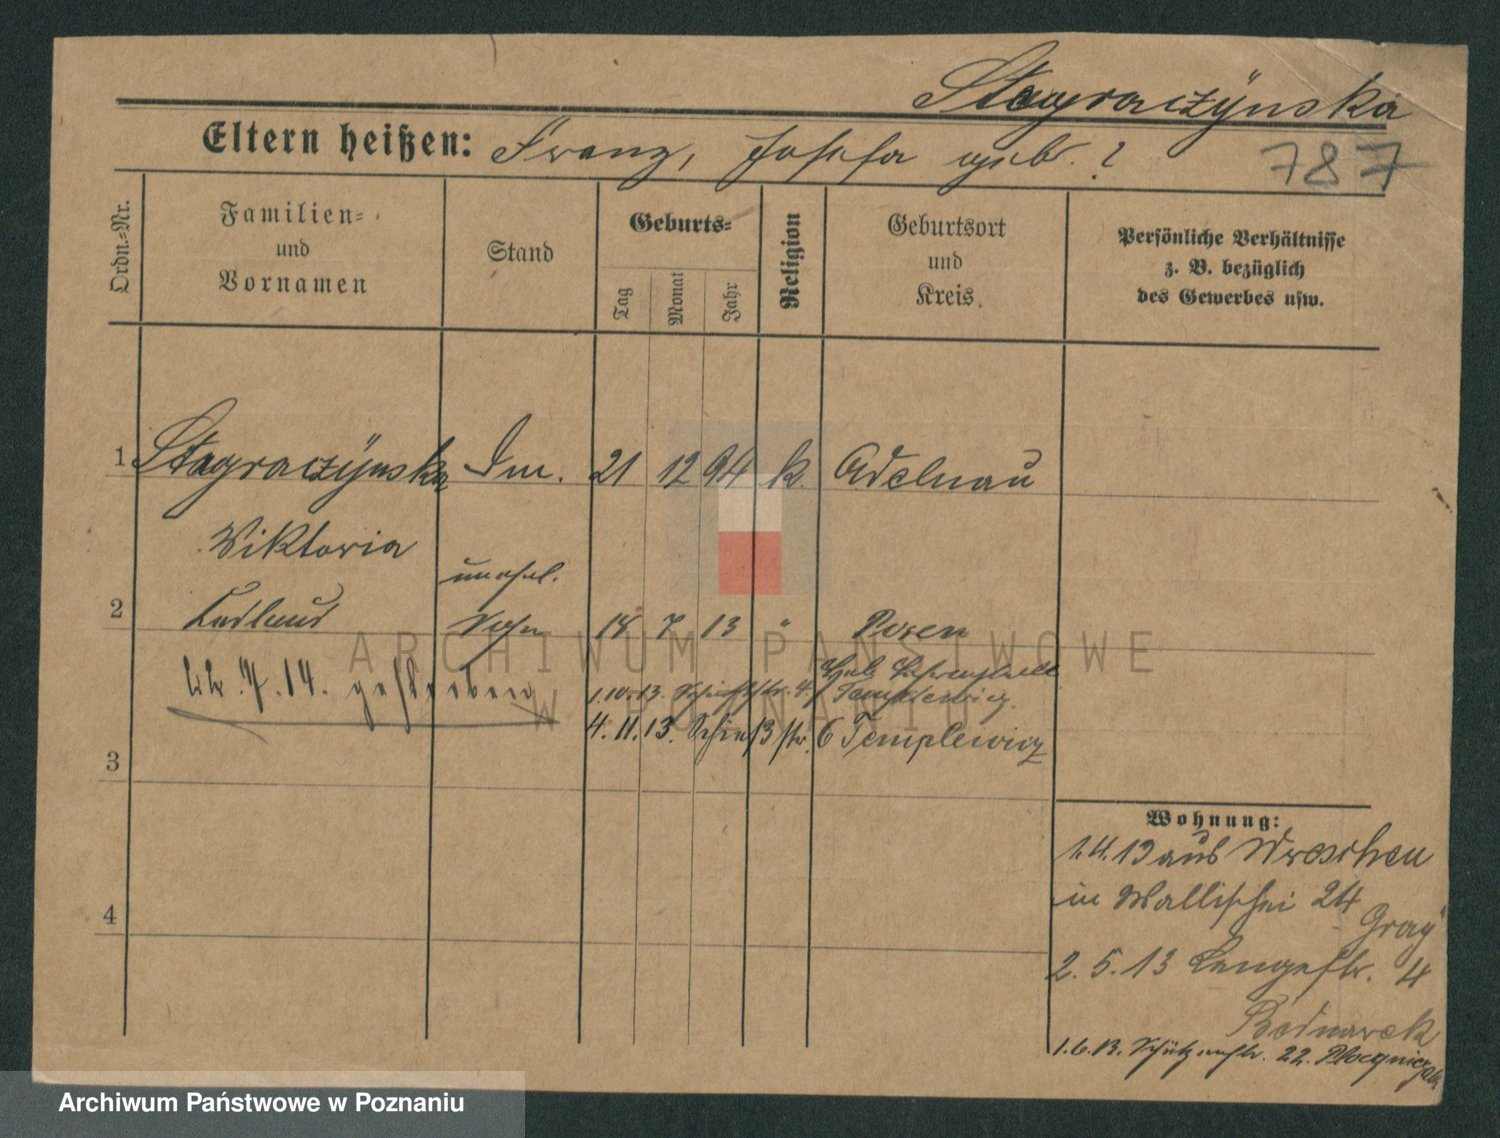 Stagraczÿnska
Eltern heißen: Franz, Josefa geb. ?
787
Ordn.-Nr.
Familien-
und
Vornamen
Stand
Geburts-
Tag
Monat
Jahr
Religion
Geburtsort
und
Kreis.
Persönliche Verhältnisse
z. B. bezüglich
des Gewerbes usw.
1 Stagraczÿnska 21 12 94 k. Adelnau
Viktoria
unehel.
2 Sohn 18 7 13 " Posen
7. 14. gestorben
1. 10. 13. 4
4. 11. 13. 13 str. 6 Templewicz
3
4
Wohnung:
1.4.13 aus Wreschen
in Wallischei 24
Gray
2. 5. 13 Langestr. 4
Bednarek
1. 6. 13. Schützenstr. 22.
ARCHIWUM PAŃSTWOWE
W POZNANIU
Archiwum Państwowe w Poznaniu